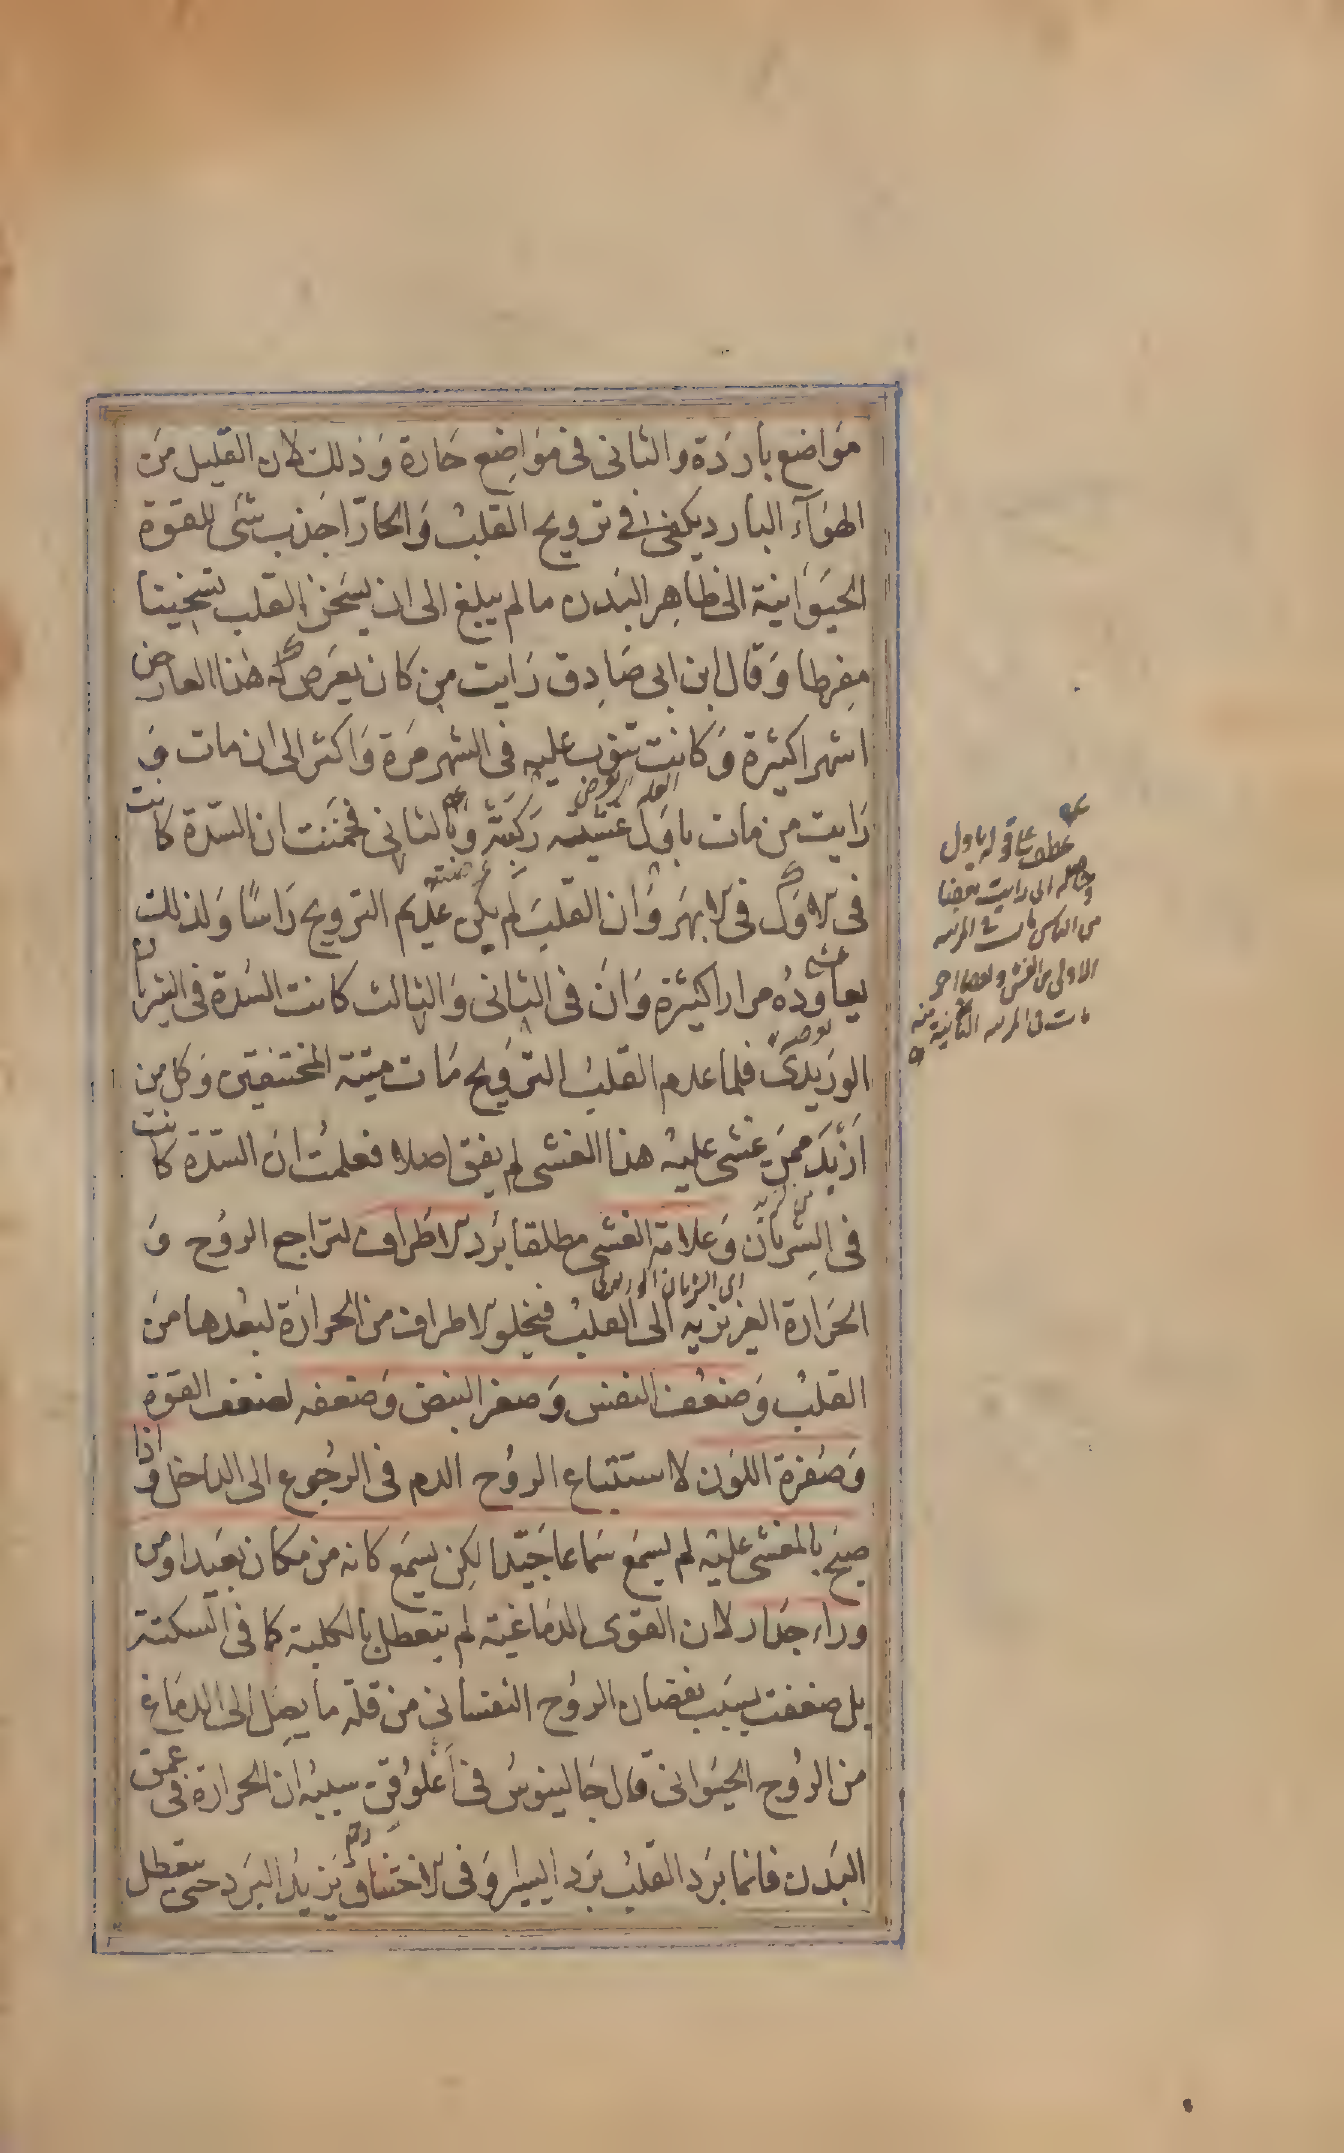 مواضع باردة والثانى فى مواضع حارة وذلك لان القليل من
الهوآء البارد يكفى فى ترويح القلب والحارّ اجذب شئ للقوة
الحيوانية الى ظاهر البدن ما لم يبلغ الى ان يسخن القلب تسخينا
مفرطا وقال ابن ابى صادق رايت من كان يعرض له هذا العارض
اشهرا كثيرة وكانت تنوب عليه فى الشهر مرة واكثر الى ان مات و
رايت من مات باول غشية ركبته وبالثانى فخمنت ان السدّة كانت
فى الاول فى الابهر وان القلب لم يكن عديم الترويح راسًا ولذلك
يعاوده مرارا كثيرة وان فى الثانى والثالث كانت السدة فى الشريان
الوريدى فلما عدم القلب الترويح مات ميتة المختنقين وكل من
ازبدَ ممن غشى عليه هذا الغشى لم يفق اصلا فعلمت ان السدّة كانت
فى الشريان وعلامة الغشى مطلقا برد الاطراف لتراجع الروح و
الحرارة الغريزية الى القلب فيخلو الاطراف من الحرارة لبعدها من
القلب وضعف النفس وصغر النبض وضعفه لضعف القوة
وصفرة اللون لاستتباع الروح الدم فى الرجوع الى الداخل واذا
صيح بالمغشى عليه لم يسمع سماعا جيّدا لكن يسمع كانه من مكان بعيد او من
وراء جدار لان القوى الدماغية لم يتعطل بالكلية كما فى السكتة
بل ضعفت بسبب نقصان الروح النفسانى من قلّة ما يصل الى الدماغ
من الروح الحيوانى قال جالينوس فى اغلوقن سببه ان الحرارة فى عمق
البدن فانما برد القلب بردا يسيرا وفى الاختناق يزيد البرد حتى يتعطل
عطف على قوله باول
وحاصله انى رايت بعضا
من الناس مات فى المرتبه
الاولى من الغشى وبعضا اخر
مات فى المرتبه الثانية منه
اى الشريان الوريدى